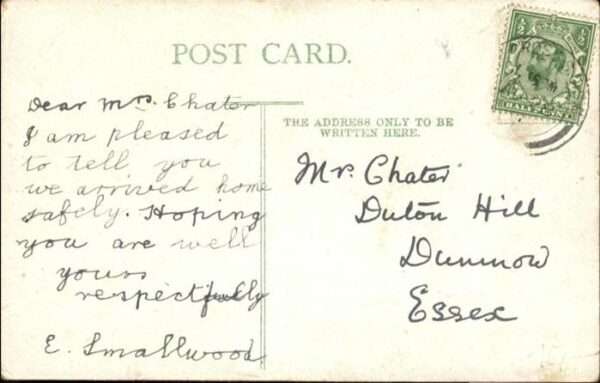 POST CARD.
Dear Mrs. Chater
I am pleased
to tell you
we arrived home
safely. Hoping
you are well
yours
respectfully
E. Smallwood
THE ADDRESS ONLY TO BE
WRITTEN HERE.
Mr. Chater
Duton Hill
Dunmow
Essex
HALFPENNY